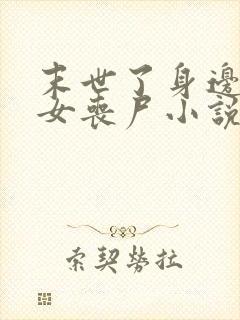 末世了身邊
女喪尸小說
索契勞拉